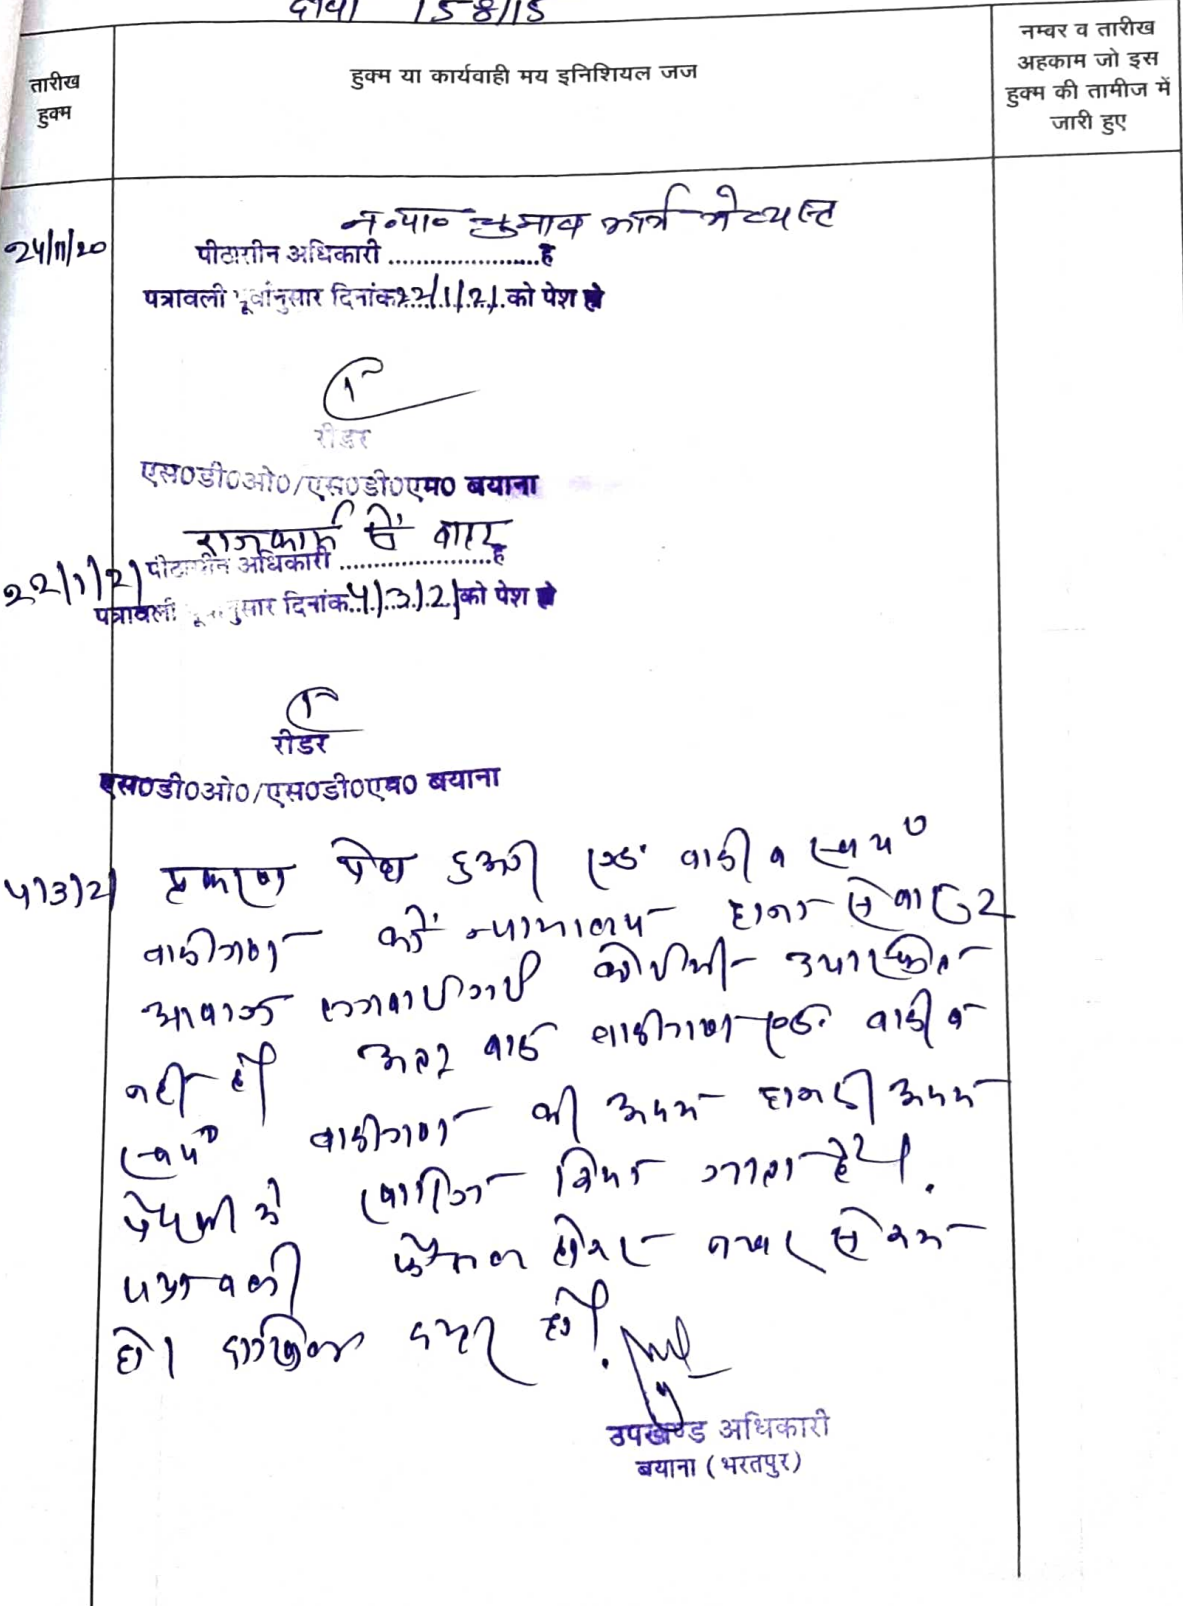 दावा 158/15
तारीख
हुक्म
हुक्म या कार्यवाही मय इनिशियल जज
नम्बर व तारीख
अहकाम जो इस
हुक्म की तामीज में
जारी हुए
24/11/20
न०पा० चुनाव कार्य में व्यस्त
पीठासीन अधिकारी ......................है
पत्रावली पूर्वानुसार दिनांक 22/1/21 को पेश हो
रीडर
एस०डी०ओ०/एस०डी०एम० बयाना
22/1/21
राजकार्य से बाहर
पीठासीन अधिकारी ......................है
पत्रावली पूर्वानुसार दिनांक 4/3/21 को पेश हो
रीडर
एस०डी०ओ०/एस०डी०एम० बयाना
4/3/21
प्रकरण पेश हुआ एड. वादी व स्वयं
वादीगण को न्यायालय द्वारा
आवाज लगवाई गयी कोई भी उपस्थित
नहीं है अतः वाद वादीगण एड. वादी व
स्वयं वादीगण की अदम हाजरी अदम
पैरवी में खारिज किया जाता है।
पत्रावली फैसल होकर नम्बर से कम
हो। दाखिल दफ्तर हो।
उपखण्ड अधिकारी
बयाना (भरतपुर)